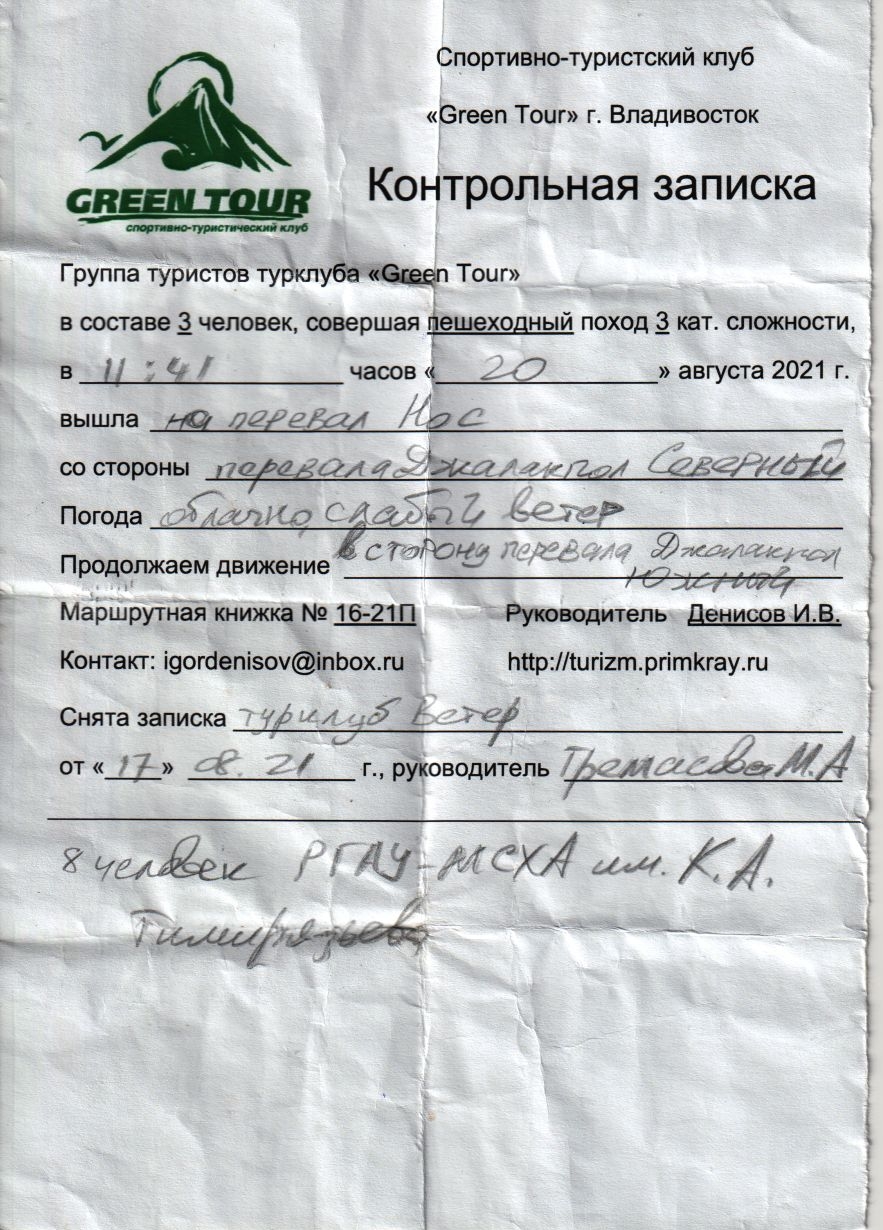 Спортивно-туристский клуб
«Green Tour» г. Владивосток
Контрольная записка
GREEN TOUR
спортивно-туристический клуб
Группа туристов турклуба «Green Tour»
в составе 3 человек, совершая пешеходный поход 3 кат. сложности,
в 11:41 часов «20» августа 2021 г.
вышла на перевал Нос
со стороны перевала Джалакпол Северный
Погода облачно, слабый ветер
Продолжаем движение в сторону перевала Джалакпол
Южный
Маршрутная книжка № 16-21П Руководитель Денисов И.В.
Контакт: igordenisov@inbox.ru http://turizm.primkray.ru
Снята записка турклуб Ветер
от «17» 08.21 г., руководитель Тремасова М.А
8 человек РГАУ-МСХА им. К.А.
Тимирязева